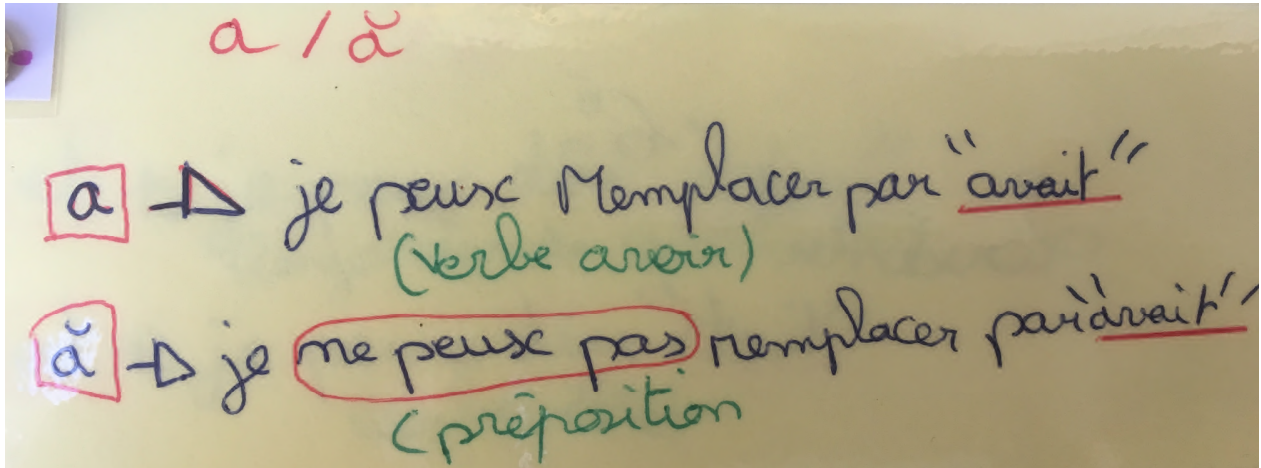 a / ă
a → je peux remplacer par "avait"
(verbe avoir)
ă → je ne peux pas remplacer par "avait"
(préposition